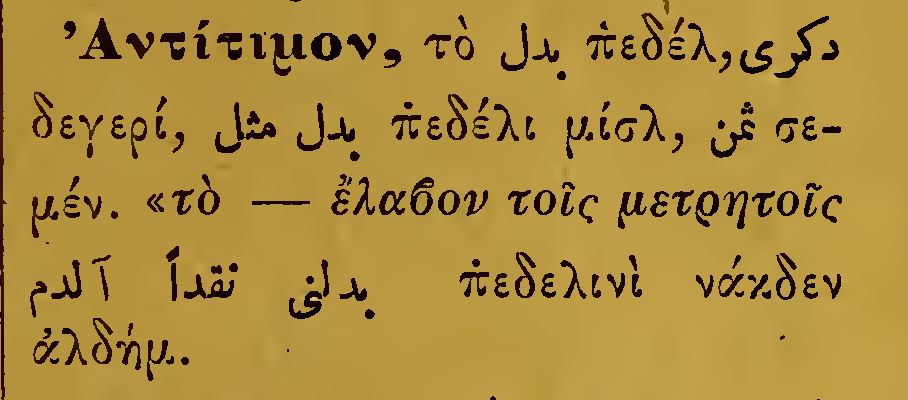 Ἀντίτιμον, τὸ بدل π̇εδέλ, دكرى
δεγερί, بدل مثل π̇εδέλι μίσλ, ثمن σε-
μέν. «τὸ — ἔλαϐον τοῖς μετρητοῖς
بدلنى نقداً آلدم π̇εδελινὶ νάκδεν
ἀλδήμ.